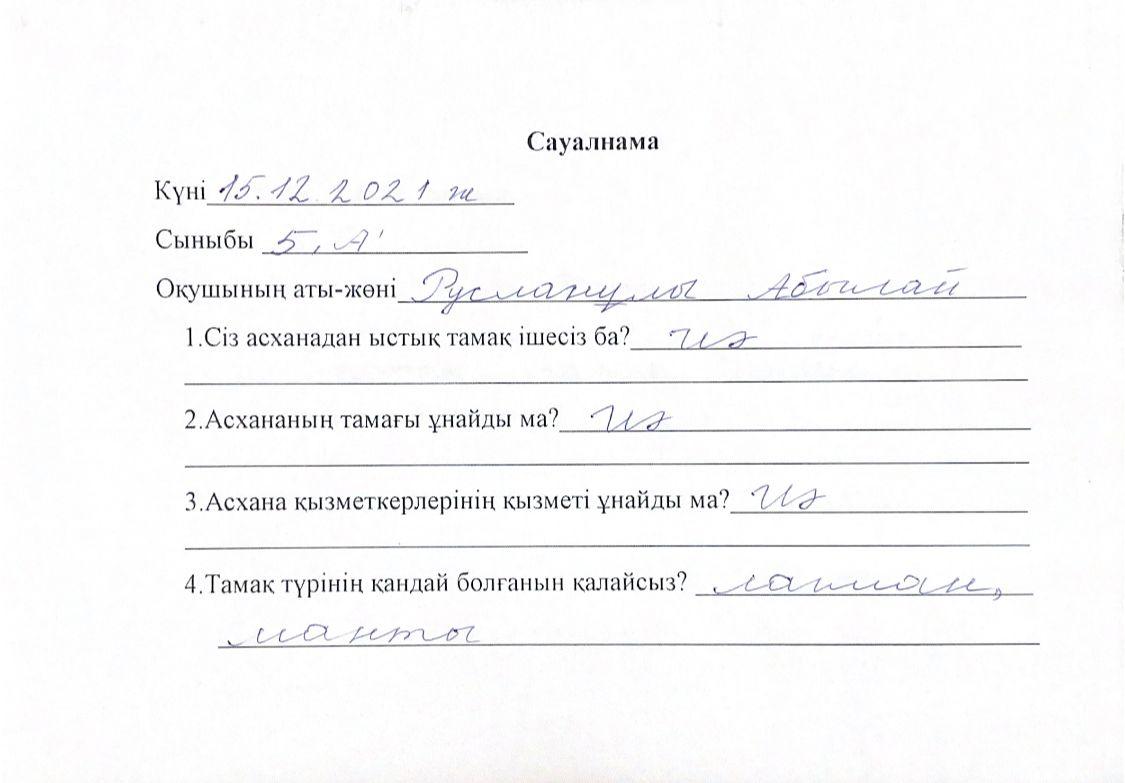 Сауалнама
Күні 15.12.2021 ж
Сыныбы 5 "А"
Оқушының аты-жөні Русланұлы Абылай
1.Сіз асханадан ыстық тамақ ішесіз ба? иә
2.Асхананың тамағы ұнайды ма? иә
3.Асхана қызметкерлерінің қызметі ұнайды ма? иә
4.Тамақ түрінің қандай болғанын қалайсыз? лагман,
манты